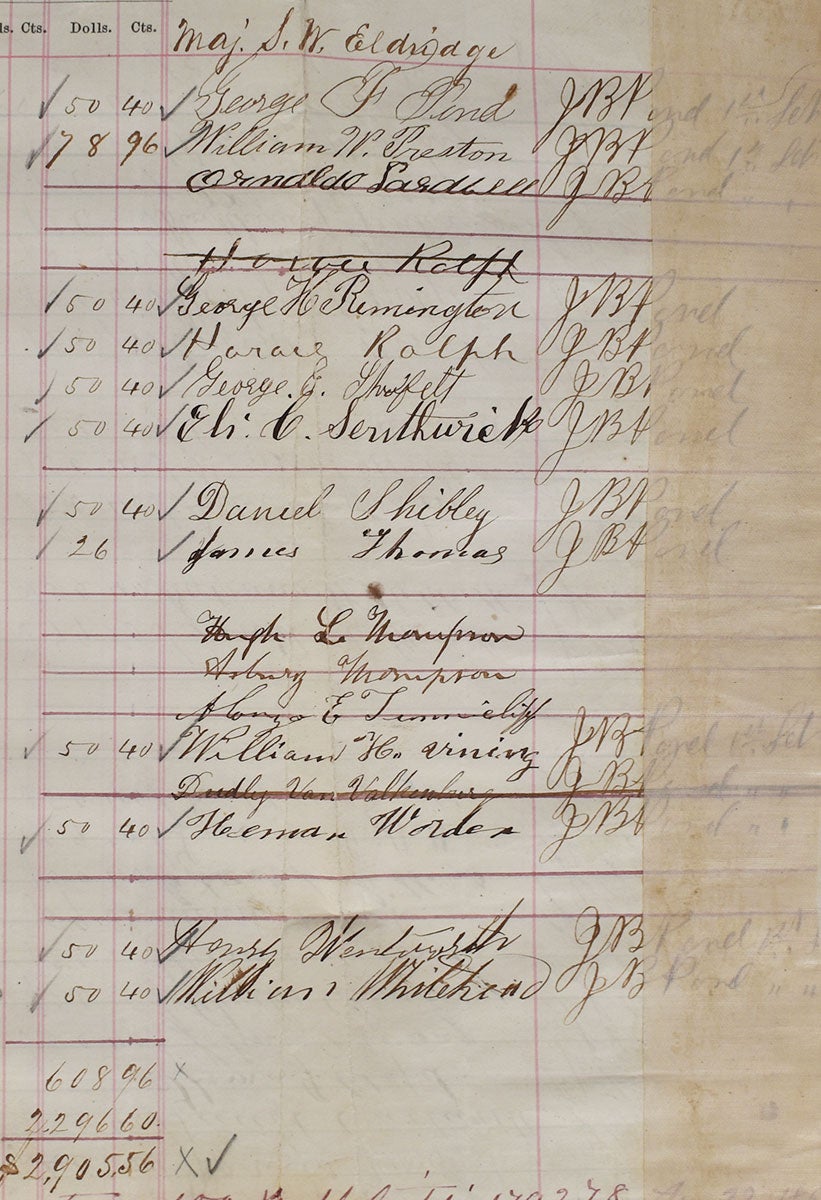 ls. Cts. Dolls. Cts.
Maj. S. W. Eldridge
50 40 George F Pond J B Pond 1st Lt
78 96 William W. Preston J B Pond 1st Lt
Ornaldo Pardwell J B Pond
Horace Ralph
50 40 George H Remington J B Pond
50 40 Horace Ralph J B Pond
50 40 George. E. J B Pond
50 40 Eli. C. Southwick J B Pond
50 40 Daniel Shibley J B Pond
26 James Thomas J B Pond
Hugh L. Thompson
Asbury Thompson
Alonzo E Tunnicliff
50 40 William H. vining J B Pond 1st Lt
Dudley Van Valkenburg J B Pond " "
50 40 Heman Worden J B Pond " "
50 40 Henry Wentworth J B Pond 1st
50 40 William Whitehead J B Pond " "
608 96 x
2,296 60.
$2,905.56 x